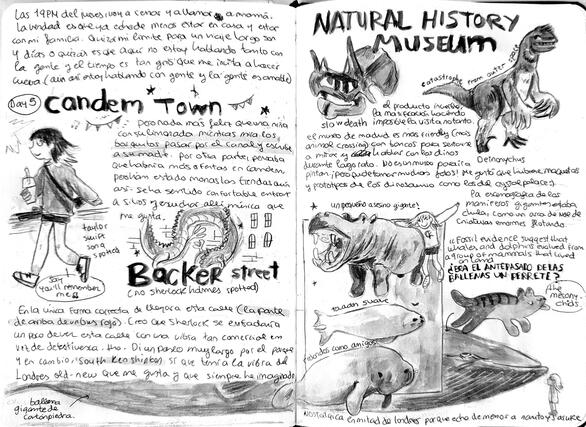 Las 19 PM del jueves voy a cenar y a llamar a mamá.
La verdad es que ya echo de menos estar en casa y estar
con mi familia. Quizá mi límite para un viaje largo son
y días o quizás es de aquí no estoy hablando tanto con
la gente y el tiempo es tan gris que me incita a hacer
cueva (aún así estoy hablando con gente y la gente es amable)
Day 5
Candem Town
por nada más feliz que una niña
con su limonada mientras mira los
barquitos pasar por el canal y escucha
a su madre. por otra parte, pensaba
que habría más tiendas en Camden,
podrían estado monas las tiendas aún
así. Se ha sentido confortable entrar
a sitios y escuchar allí música que
me gusta.
taylor
swift
song
spotted
say
you'll remember
me
Backer Street
(no sherlock holmes spotted)
En la única forma correcta de llegar a esta calle (la parte
de arriba de un bus rojo). Creo que Sherlock se enfadaría
un poco de ver esta calle con una vibra tan comercial en
vez de detectivesca. Di un paseo muy largo por el parque
y en cambio, South Kensington sí que tenía la vibra del
Londres old-new que me gusta y que siempre he imaginado
ballena
gigante de
cartónpiedra.
NATURAL HISTORY
MUSEUM
catastrophe from outer space
el producto increíble
slow death
imposible la visita
el museo de madrid es más friendly (más
animal crossing) con bancos para sentarse
a mirar y hablar con los dinos
durante largo rato. No es un museo para ir a
pintar. Me gustó que hubiese maquetas
y prototipos de los dinosaurios como los del crystal palace
Deinonychus
la escenografía de los
mamíferos gigantes estaba
chula, como un arca de noé de
criaturas enormes flotando.
un pequeño asesino gigante!
"Fossil evidence suggest that
whales and dolphins evolved from
a group of mammals that lived
on land"
¿ERA EL ANTEPASADO DE LAS
BALLENAS UN PERRETE?
the mesony-
chids
taaaan suave
rotundos como amigos!
Nostálgica en mitad de londres porque echo de menos a naruto y sasuke